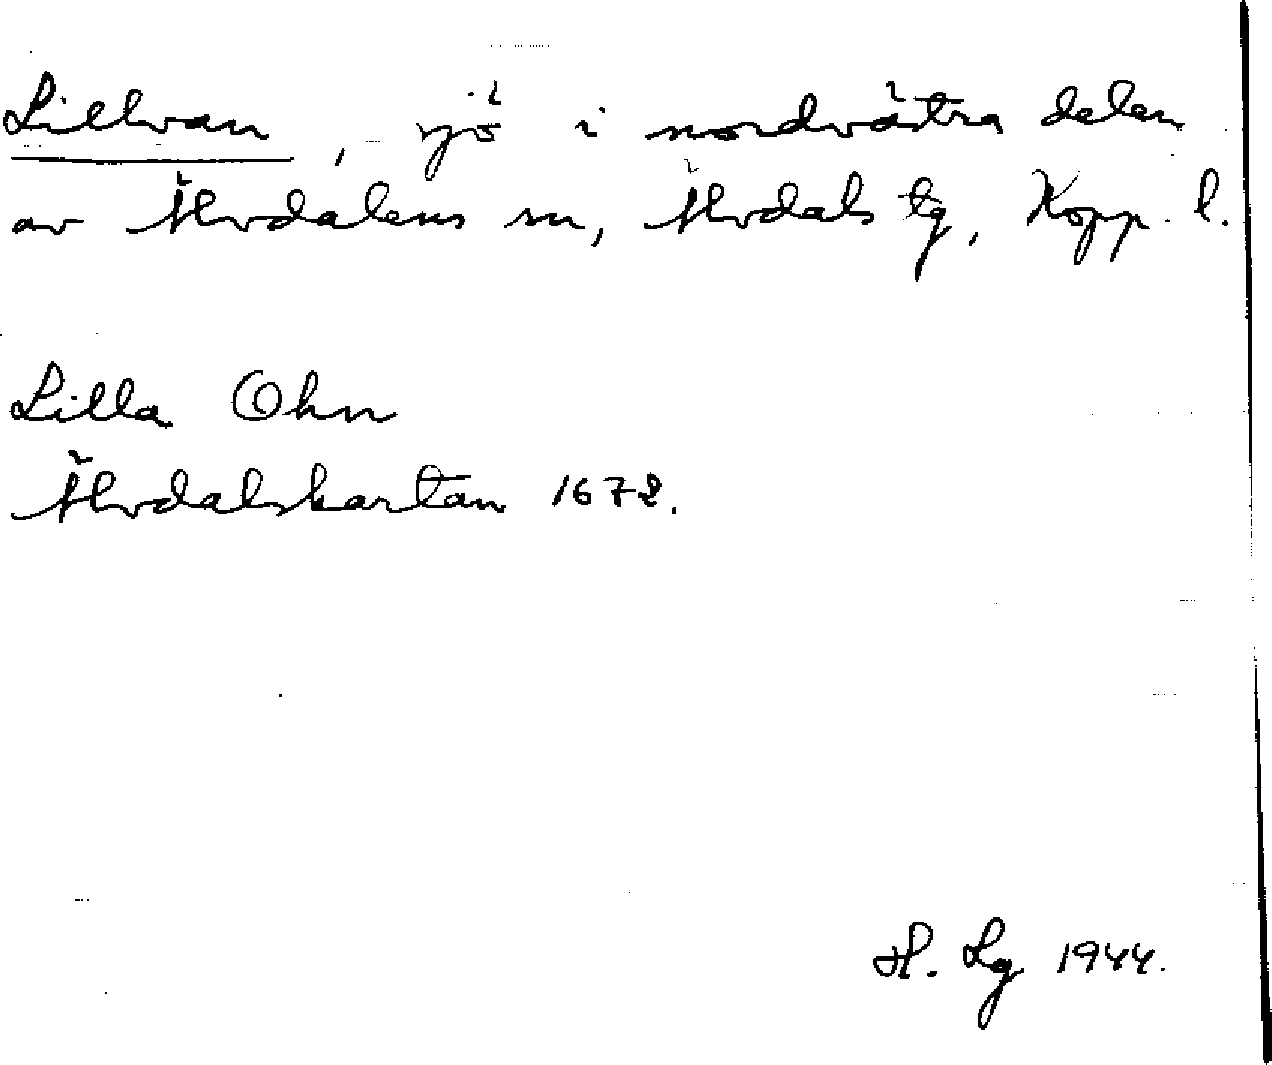 Lillvan, sjö i nordvästra delen
av Älvdalens sn, Älvdals tg, Kopp. l.
Lilla Ohn
Älvdalskartan 1672.
H. Lg 1944.